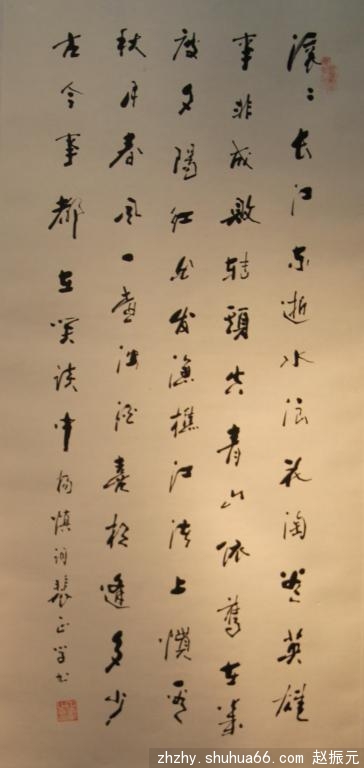 滚〻长江东逝水浪花淘尽英雄
事非成败转头空青山依旧在几
度夕阳红白发渔樵江渚上惯看
秋月春风一壶浊酒喜相逢多少
古今事都在笑谈中 杨慎词 裴正学书
zhzhy.shuhua66.com 赵振元